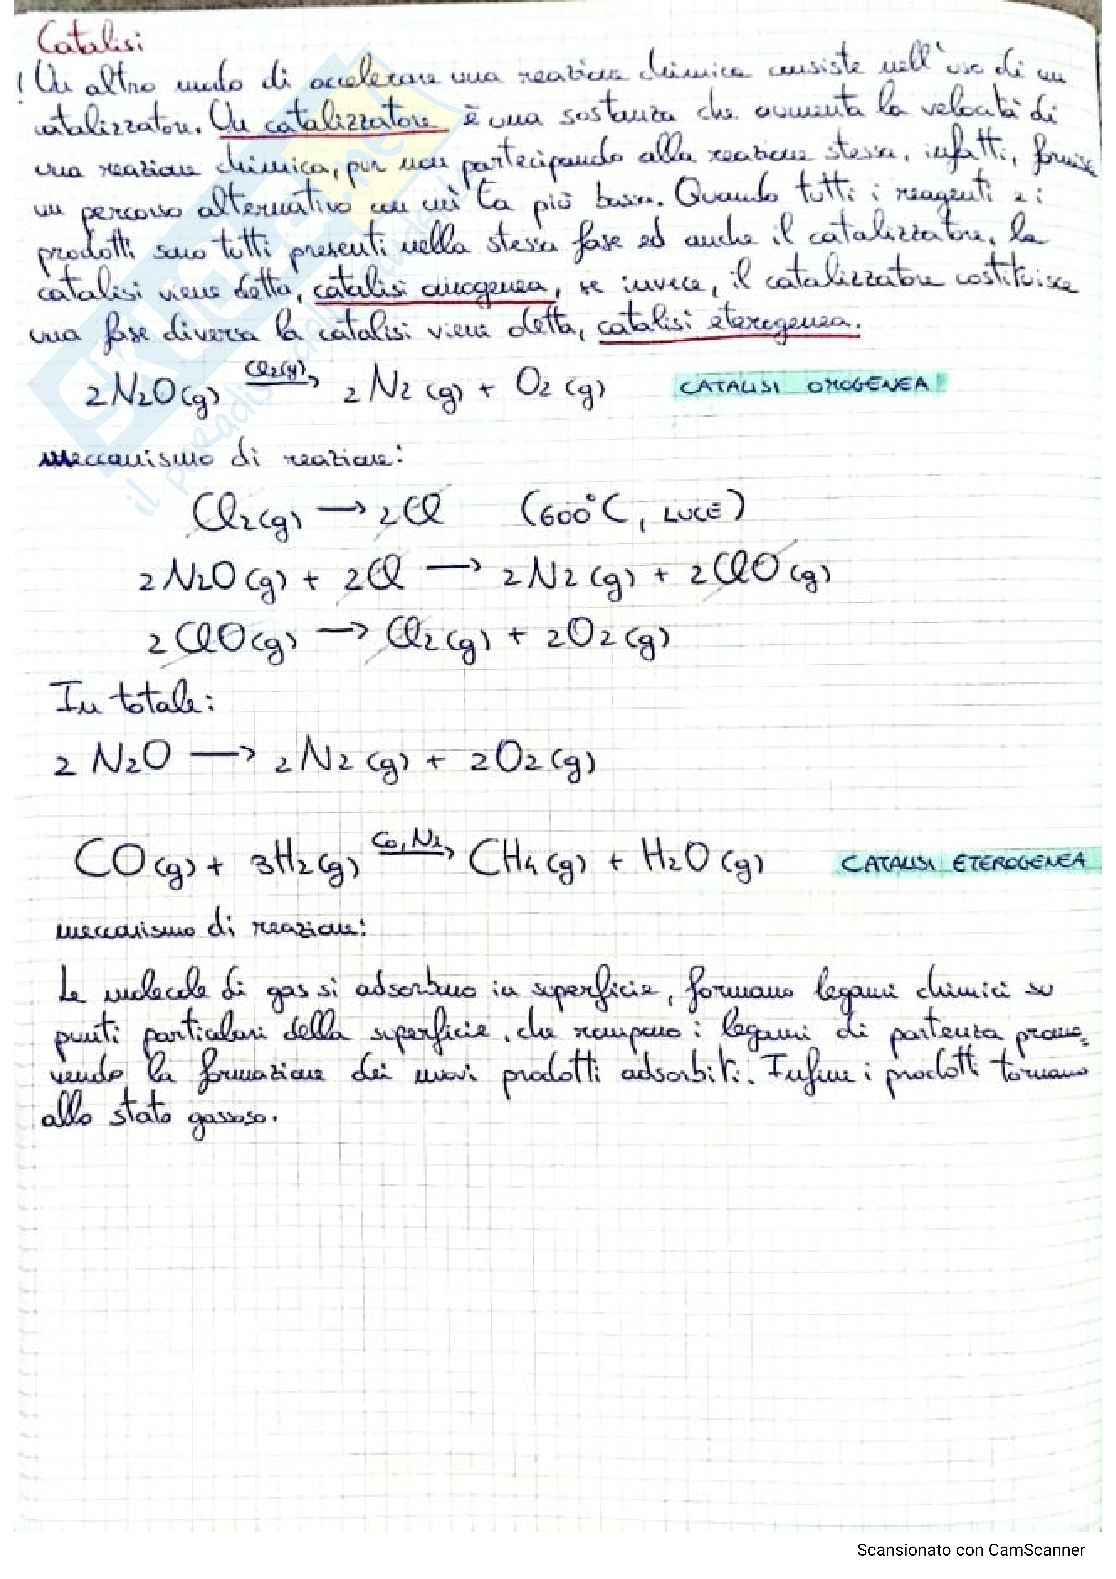 Catalisi
! Un altro modo di accelerare una reazione chimica consiste nell'uso di un
catalizzatore. Un catalizzatore è una sostanza che aumenta la velocità di
una reazione chimica, pur non partecipando alla reazione stessa, infatti, fornisce
un percorso alternativo con cui Ea più bassa. Quando tutti i reagenti e i
prodotti sono tutti presenti nella stessa fase ed anche il catalizzatore, la
catalisi viene detta, catalisi omogenea, se invece, il catalizzatore costituisce
una fase diversa la catalisi viene detta, catalisi eterogenea.
2N2O(g) Cl2(g)→ 2N2(g) + O2(g) CATALISI OMOGENEA
meccanismo di reazione:
Cl2(g) → 2Cl (600°C, LUCE)
2N2O(g) + 2Cl → 2N2(g) + 2ClO(g)
2ClO(g) → Cl2(g) + 2O2(g)
In totale:
2 N2O → 2N2(g) + 2O2(g)
CO(g) + 3H2(g) Co, Ni→ CH4(g) + H2O(g) CATALISI ETEROGENEA
meccanismo di reazione:
Le molecole di gas si adsorbono in superficie, formano legami chimici su
punti particolari della superficie, che rompono i legami di partenza promo=
vendo la formazione dei nuovi prodotti adsorbiti. Infine i prodotti tornano
allo stato gassoso.
Scansionato con CamScanner